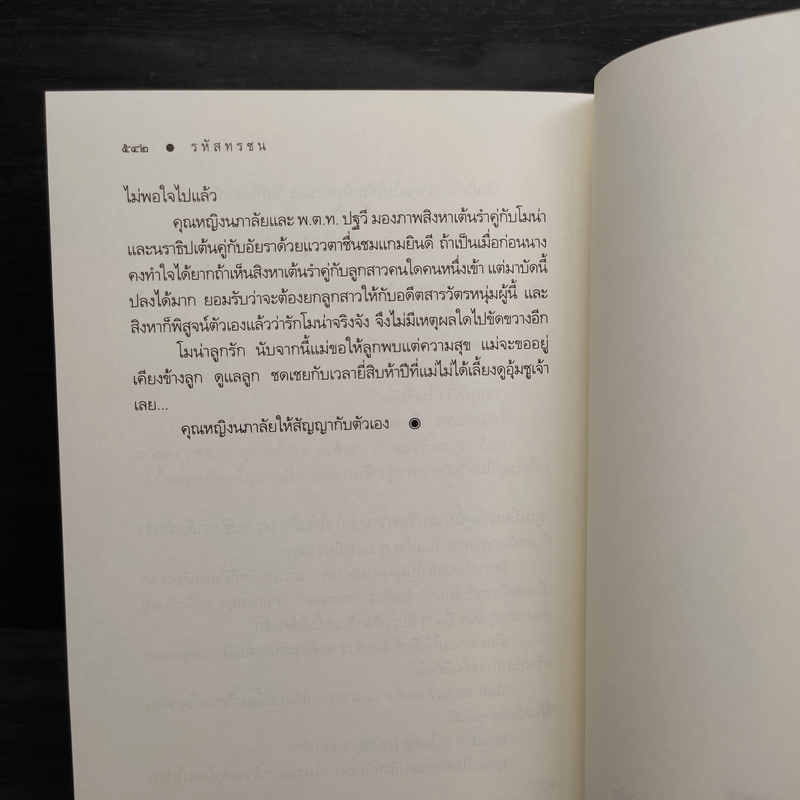 ๕๔๒ ● รหัสทรชน
ไม่พอใจไปแล้ว
คุณหญิงนภาลัยและ พ.ต.ท. ปฐวี มองภาพสิงหาเต้นรำคู่กับโมน่า
และนราธิปเต้นคู่กับอัยราด้วยแววตาชื่นชมแกมยินดี ถ้าเป็นเมื่อก่อนนาง
คงทำใจได้ยากถ้าเห็นสิงหาเต้นรำคู่กับลูกสาวคนใดคนหนึ่งเข้า แต่มาบัดนี้
ปลงได้มาก ยอมรับว่าจะต้องยกลูกสาวให้กับอดีตสารวัตรหนุ่มผู้นี้ และ
สิงหาก็พิสูจน์ตัวเองแล้วว่ารักโมน่าจริงจัง จึงไม่มีเหตุผลใดไปขัดขวางอีก
โมน่าลูกรัก นับจากนี้แม่ขอให้ลูกพบแต่ความสุข แม่จะขออยู่
เคียงข้างลูก ดูแลลูก ชดเชยกับเวลายี่สิบห้าปีที่แม่ไม่ได้เลี้ยงดูอุ้มชูเจ้า
เลย...
คุณหญิงนภาลัยให้สัญญากับตัวเอง ◉